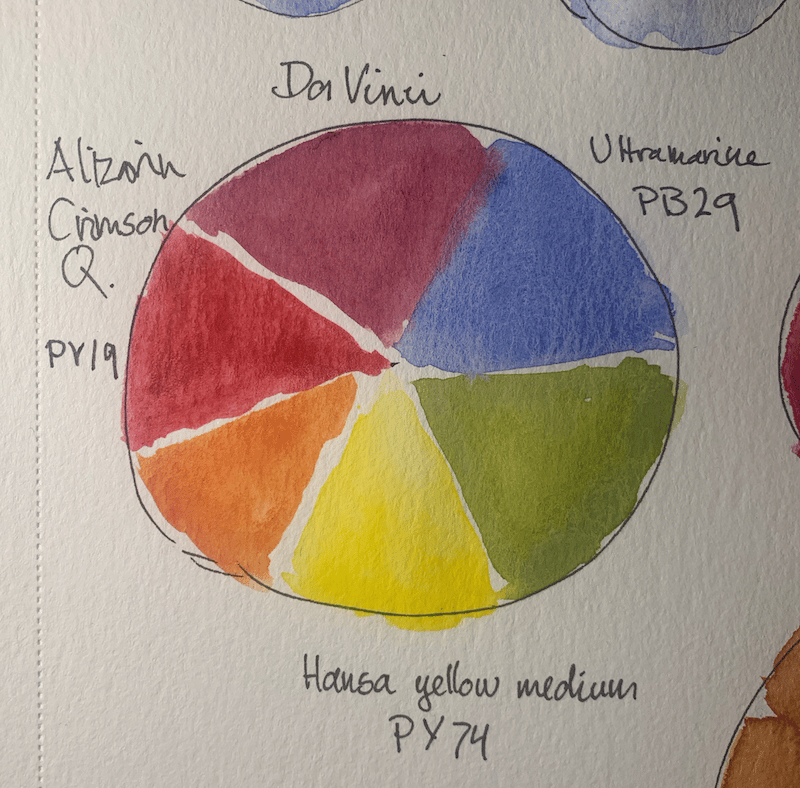 Da Vinci
Alizarin
Crimson
Q.
PV19
Ultramarine
PB29
Hansa yellow medium
PY74